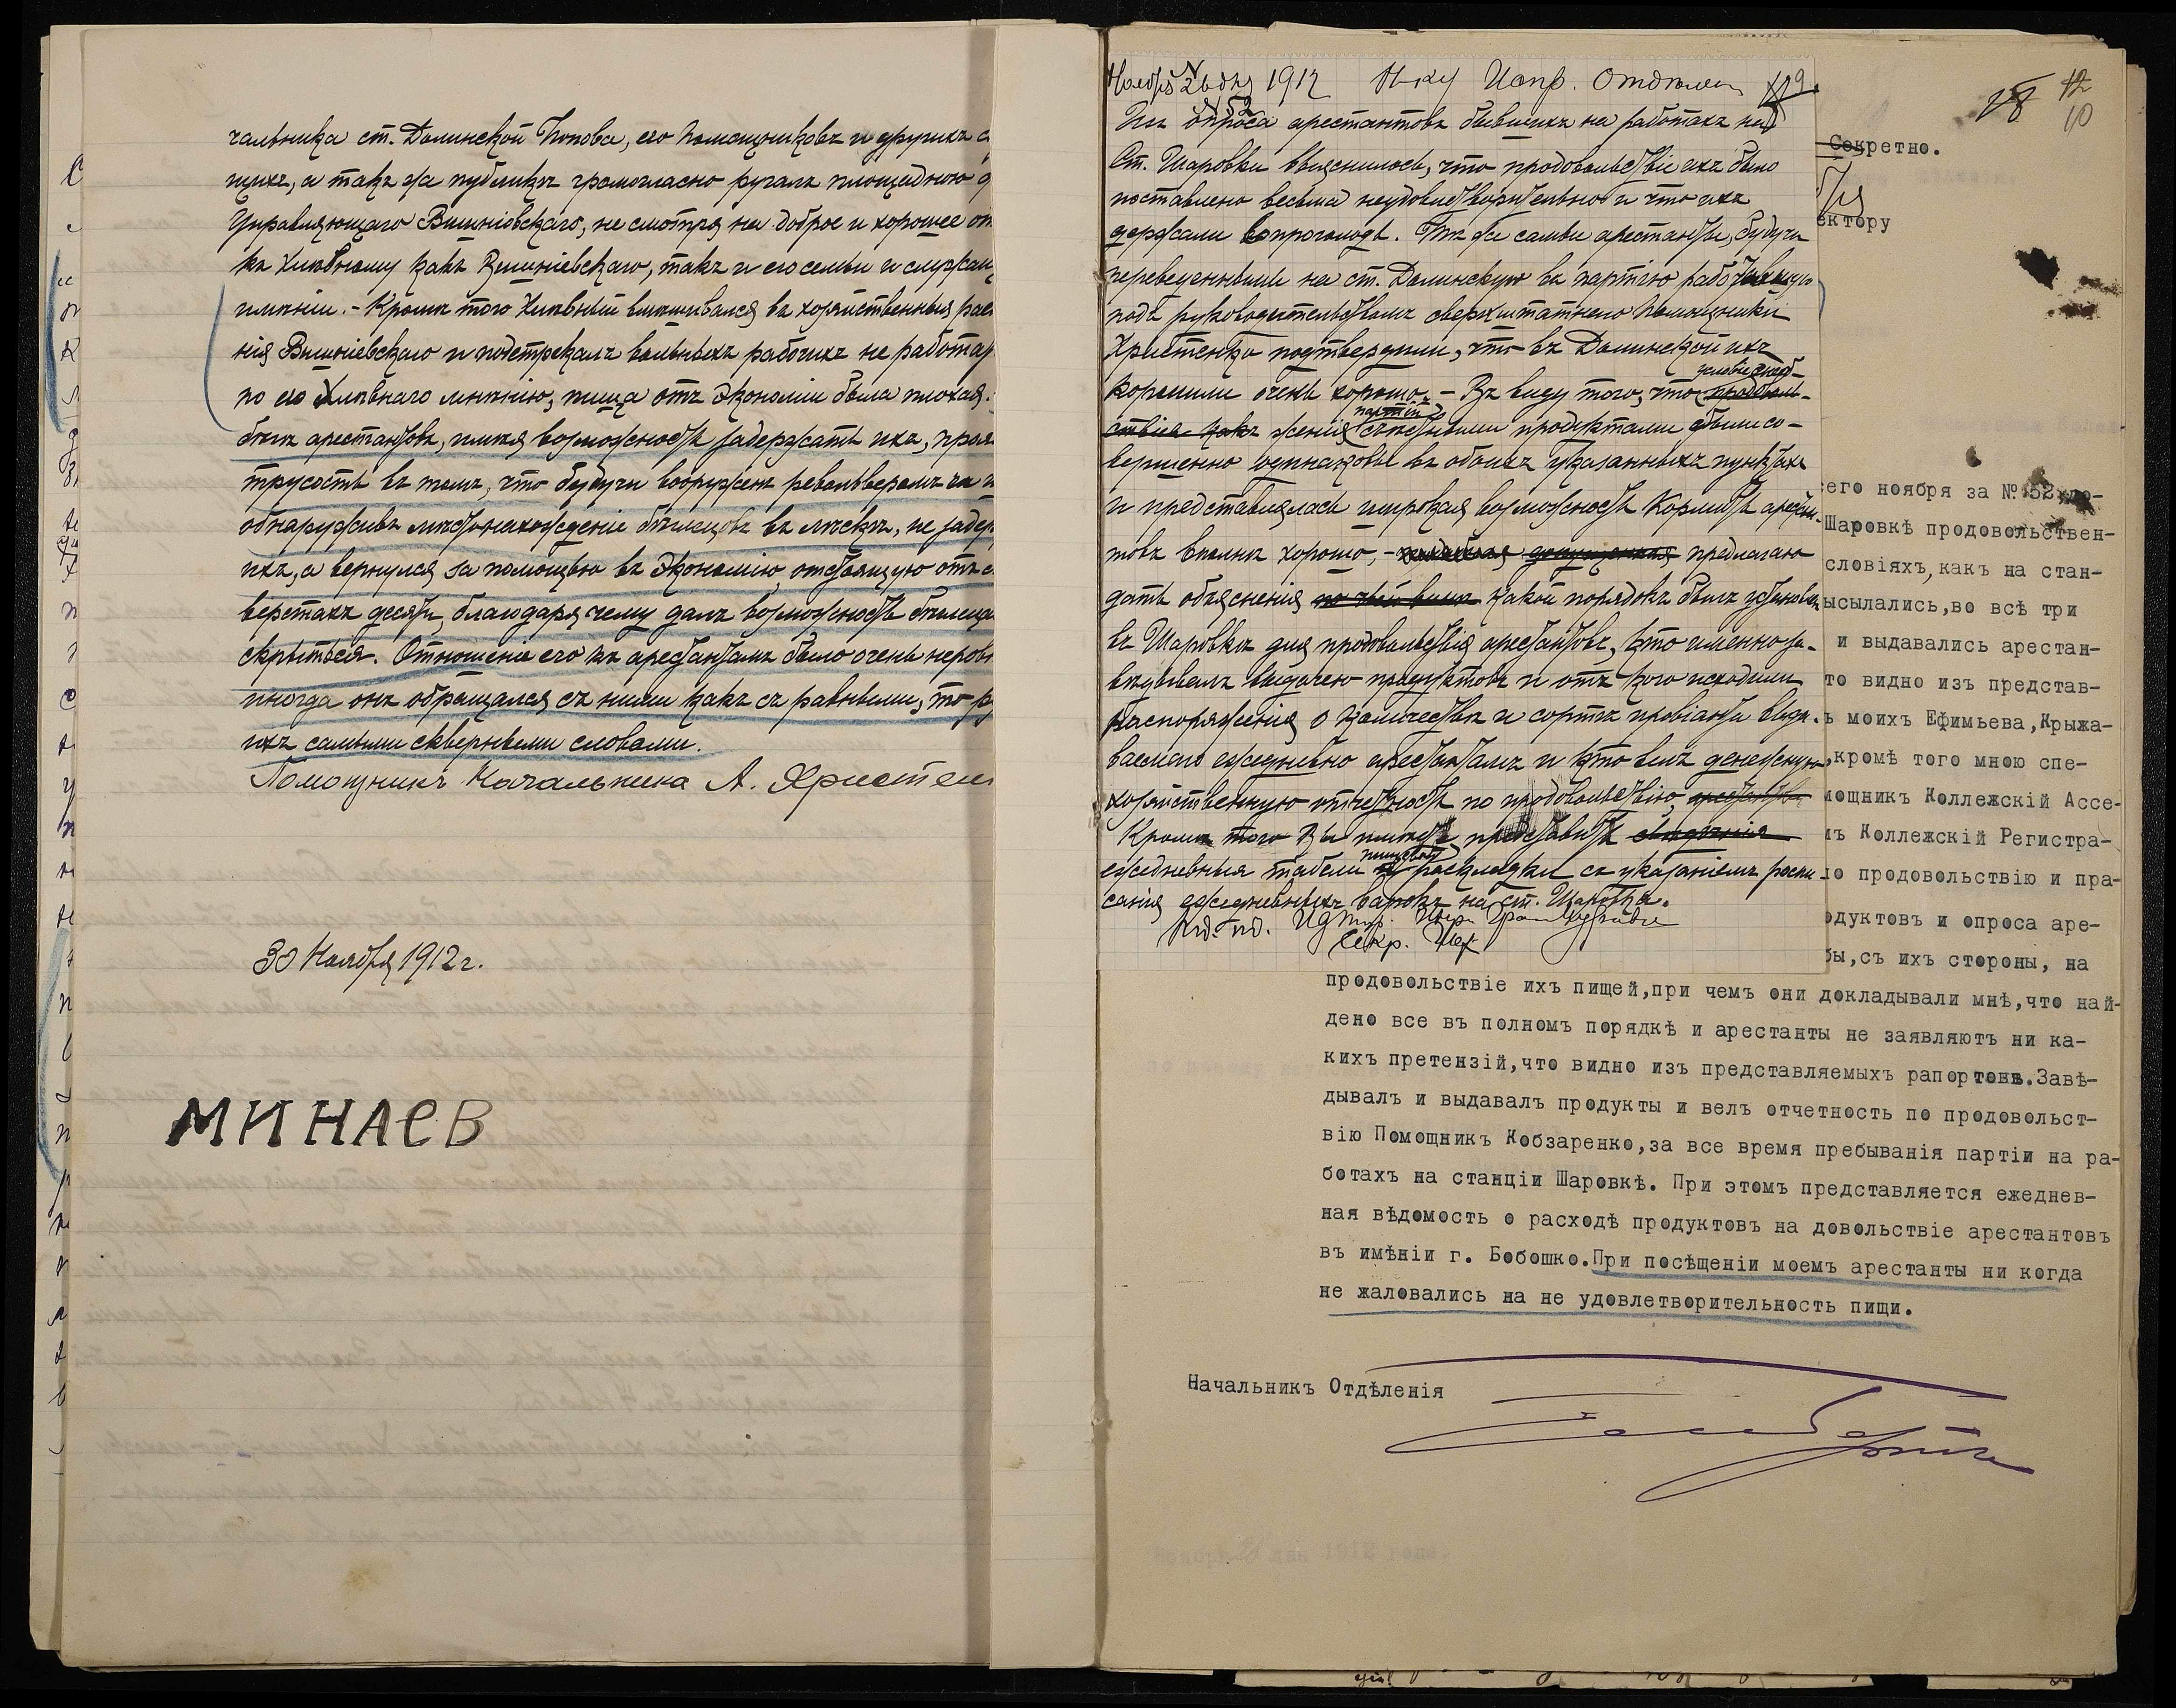 чальника ст. Долинской Попова, его помощниковъ и другихъ с
щихъ, а такъ же публикѣ громогласно ругалъ площадною
Управляющаго Вишніовскаго, не смотря на доброе и хорошее от
къ Хлѣбному какъ Вишніевскаго, такъ и его семьи и служащ
имѣнии. - Кромѣ того Хлѣвный вмѣшивался въ хозяйственныя рас
нія Вишніевскаго и подстрекалъ вольныхъ рабочихъ не работа
по его Хлѣвнаго мнѣнію, пища отъ экономіи была плохая.
арестантовъ, имѣя возможность задержать ихъ, проя
трусость въ томъ, что будучи вооруженъ револьверомъ
обнаруживъ мѣстонахожденіе бѣглецовъ въ лѣску, не задер
ихъ, а вернулся за помощью въ экономію, отстоящую отъ
верстахъ десяти, благодаря чему далъ возможность бѣглеца
скрыться. Отношеніе его къ арестантамъ было очень неров
иногда онъ обращался съ ними какъ съ равными, то р
ихъ самыми скверными словами.
Помощникъ Начальника А. Христен
30 Ноября 1912 г.
МИНАЕВ
Ноября 26 дня 1912 Н-ку Испр. Отдѣлен
№ 52
Изъ опроса арестантовъ бывшихъ на работахъ на
Ст. Шаровки выяснилось, что продовольствіе ихъ было
поставлено весьма неудовлетворительно и что ихъ
держали впроголодь. Тѣ же самые арестанты, будучи
переведенными на ст. Долинскую въ партію
подъ руководительствомъ сверхштатнаго помощника
Христенко подтвердили, что въ Долинской ихъ
условія снаб-
кормили очень хорошо. - Въ виду того, что продоволь-
партій
ствія какъ женія съѣстными продуктами были со-
вершенно одинаковы въ обоихъ указанныхъ пунктахъ
и представлялась широкая возможность кормить арестан-
товъ вполнѣ хорошо, - предлагаю
дать объясненія по чьей винѣ какой порядокъ былъ установлен
въ Шаровкѣ для продовольствія арестантовъ, кто именно за-
вѣдывалъ выдачею продуктовъ и отъ кого исходили
распоряженія о количествѣ и сортѣ провіанта выда-
ваемаго ежедневно арестантамъ и кто велъ денежную
хозяйственную отчетность по продовольствію
Кромѣ того Вы имѣете представить свѣдѣнія
пищевой
ежедневныя табели раскладки съ указаніемъ роспи-
санія ежедневныхъ варокъ на ст. Шаровка.
28 12
10
Секретно.
ектору
сего ноября за № 52 до-
Шаровкѣ продовольствен-
словіяхъ, какъ на стан-
ысылались, во всѣ три
и выдавались арестан-
то видно изъ представ-
ъ моихъ Ефимьева, Крыжа-
кромѣ того мною спе-
мощникъ Коллежскій Ассе-
мъ Коллежскій Регистра-
по продовольствію и пра-
одуктовъ и опроса аре-
бы, съ ихъ стороны, на
продовольствіе ихъ пищей, при чемъ они докладывали мнѣ, что най-
дено все въ полномъ порядкѣ и арестанты не заявляютъ ни ка-
кихъ претензій, что видно изъ представляемыхъ рапортовъ. Завѣ-
дывалъ и выдавалъ продукты и велъ отчетность по продовольст-
вію Помощникъ Кобзаренко, за все время пребыванія партіи на ра-
ботахъ на станціи Шаровкѣ. При этомъ представляется ежеднев-
ная вѣдомость о расходѣ продуктовъ на довольствіе арестантовъ
въ имѣніи г. Бобошко. При посѣщеніи моемъ арестанты ни когда
не жаловались на не удовлетворительность пищи.
Начальникъ Отдѣленія